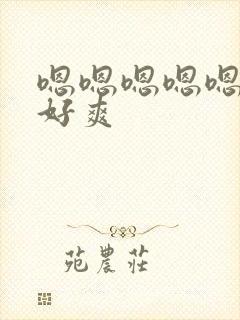 嗯嗯嗯嗯嗯
好爽
苑農莊